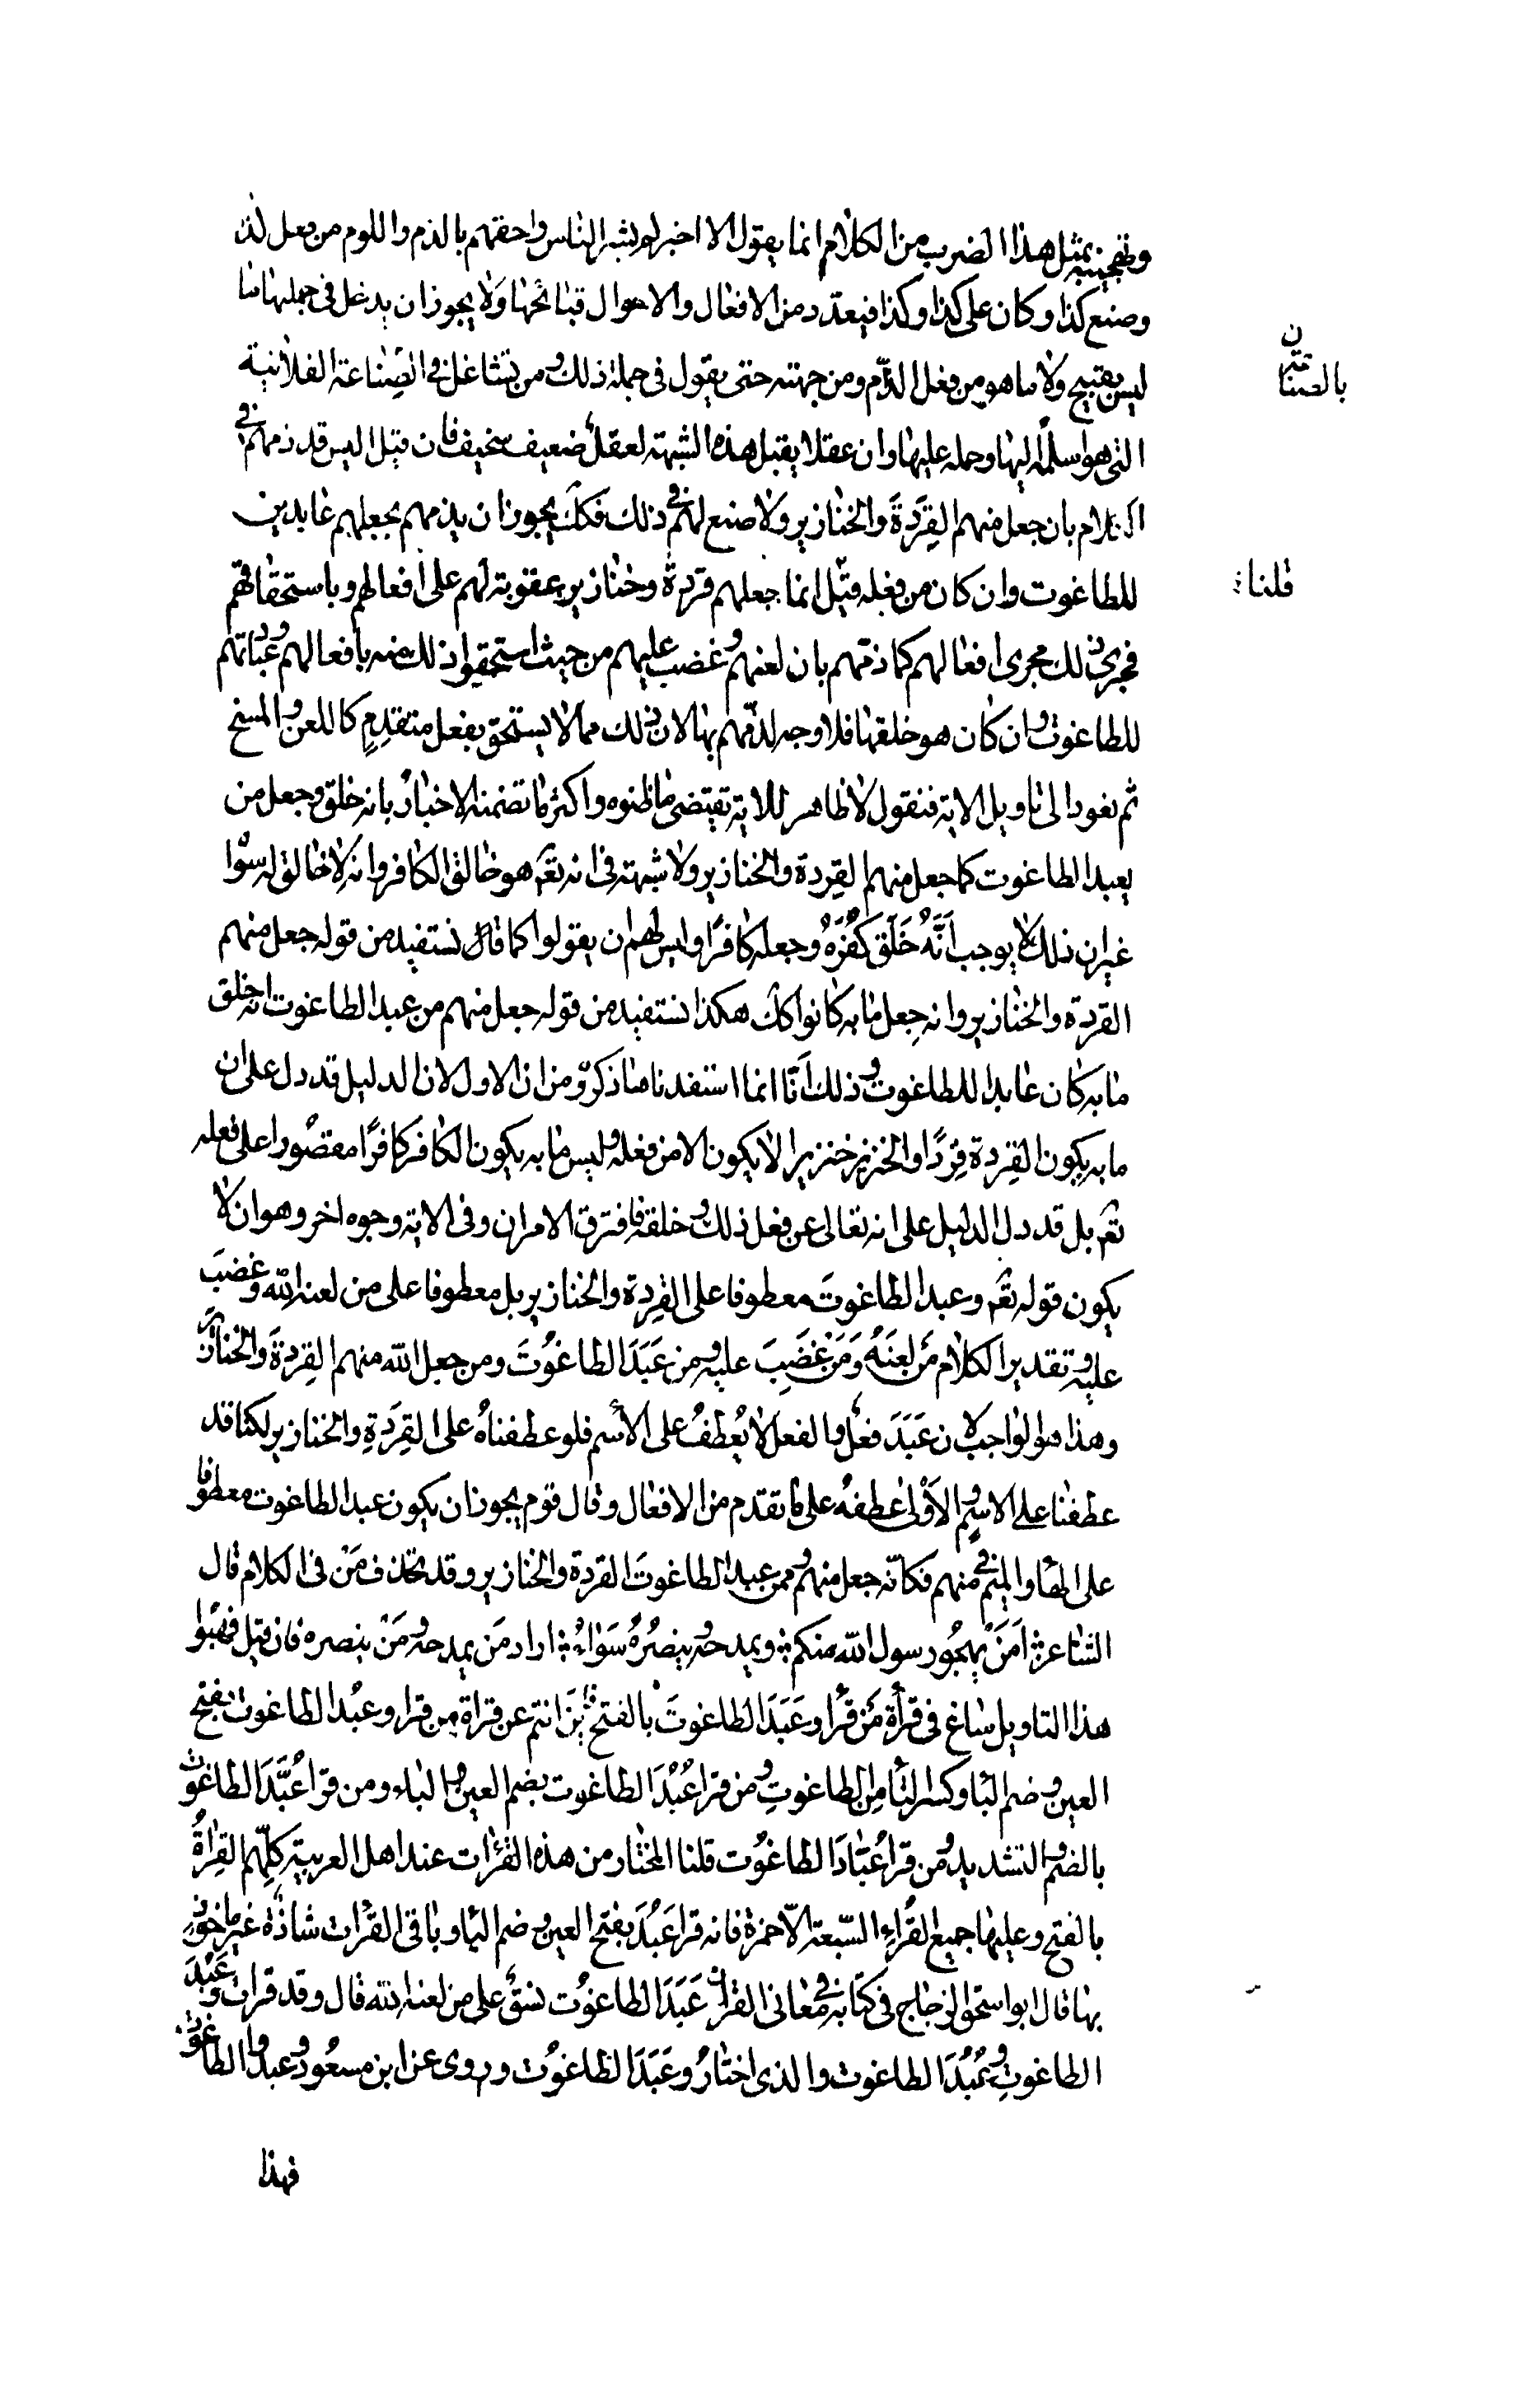 وتهجينه بمثل هذا الضرب من الكلام انما يقول الا اخبركم بشر الناس واحقهم بالذم واللوم من فعل كذا
وصنع كذا وكان على كذا وكذا فيعدد من الافعال والاحوال قبائحها ولا يجوز ان يدخل فى جملتها ما
ليس بقبيح ولا ما هو من فعل الذام ومن جهته حتى يقول فى جملة ذلك ومن يتشاغل فى الصناعة الفلانية
بالصناعتين
التى هو اسلمه اليها وحمله عليها وان عقلا يقبل هذه الشبهة لعقل ضعيف سخيف فان قيل اليس قد ذمهم فى
الكلام بان جعل منهم القِرَدَةَ والخنازير ولا صنع لهم فى ذلك فكك يجوز ان يذمهم بجعلهم عابدين
للطاغوت وان كان من فعله قيل انما جعلهم قردة وخنازير عقوبة لهم على افعالهم وباستحقاقهم
قلنا
فجرى ذلك مجرى افعالهم كما ذمّهم بان لعنهم وغضب عليهم من حيث استحقوا ذلك منه بافعالهم وعباداتهم
للطاغوت وان كان هو خلقها فلا وجه لذمّهم بها لان ذلك مما لا يستحق بفعل متقدم كاللعن والمسخ
ثم نعود الى تاويل الاية فنقول لا ظاهر للاية تقتضى ما ظنوه واكثر ما تضمنه الاخبار بانه خلق وجعل من
يعبد الطاغوت كما جعل منهم القردة والخنازير ولا شبهة فى انه تعم هو خالق الكافر وانه لا خالق له سوا
غير ان ذلك لا يوجب اَنَّهُ خَلَقَ كُفْرَهُ وجعله كافرًا وليس لهم ان يقولوا كما نستفيد من قوله جعل منهم
القردة والخنازير وانه جعل ما به كانوا كك هكذا نستفيد من قوله جعل منهم من عبد الطاغوت انه خلق
ما به كان عابدا للطاغوت وذلك اَنّا انما استفدنا ما ذكروه من الاول لان الدليل قد دل على ان
ما به يكون القردة قِرَدًا والخنزير خنزيرا لا يكون الا من فعله وليس ما به يكون الكافر كافرًا مقصورا على فعله
تعم بل قد دل الدليل على انه تعالى عن فعل ذلك وخلقه فافترق الامران وفى الاية وجوه اخر وهو ان لا
يكون قوله تعم وعبد الطاغوتَ معطوفا على القردة والخنازير بل معطوفا على من لعنه الله وغضبَ
عليه وتقدير الكلام مَن لعنَهُ وَمَنْ غَضِبَ عليه ومن عَبَدَ الطاغُوتَ ومن جعل الله منهم القِردةَ والخنازيَر
وهذا هو الواجب لان عَبَدَ فعلٌ والفعل لا يُعطفُ على الاسم فلو عطفناهُ على القِرَدَةِ والخنازير لكنا قد
عطفنا على الاسمِ والاَوْلىٰ عطفهُ على ما تقدم من الافعال وقال قوم يجوز ان يكون عبد الطاغوت معطوفا
على الهاء والميم فى منهم فكانّه جعل منهم وممن عبد الطاغوتَ القردة والخنازير وقد تحذف مَنْ فى الكلام قال
الشاعر اَمَنْ يهجُو رسول الله منكم ويمدحهُ وينصُرُهُ سَوَاءُ اراد مَن يمدحه ومَنْ ينصره فان قيل فهبوا
هذا التاويل ساغ فى قرأة مَنْ قرأ وعَبَدَ الطاغوتَ بالفتح اين انتم عن قراة من قرا وعبُد الطاغوت بفتح
العين وضم البا وكسر التاء من الطاغوتِ ومن قرا عُبُدَ الطاغوت بضم العين والباء ومن قرا عُبَّدَ الطاغوت
بالضم والتشديد ومن قرا عُبّادَ الطاغوُت قلنا المختار من هذه القراات عند اهل العربية كلِّهم القِراةُ
بالفتح وعليها جميع القُراء السّبعة الاّ حمزة فانه قرا عَبُدَ بفتح العين وضم البا وباقى القراات شاذة غير ماخوذ
بها قال ابو اسحق الزجاج فى كتابه فى معانى القران عَبَدَ الطاغوُت نسقٌ على من لعنه الله قال وقد قرات وعَبُدَ
الطاغوتِ وعُبُدَ الطاغوت والذى اختارُ وعَبَدَ الطاغوُت وروى عن ابن مسعُود وعبدوا الطاغوت
فهذا